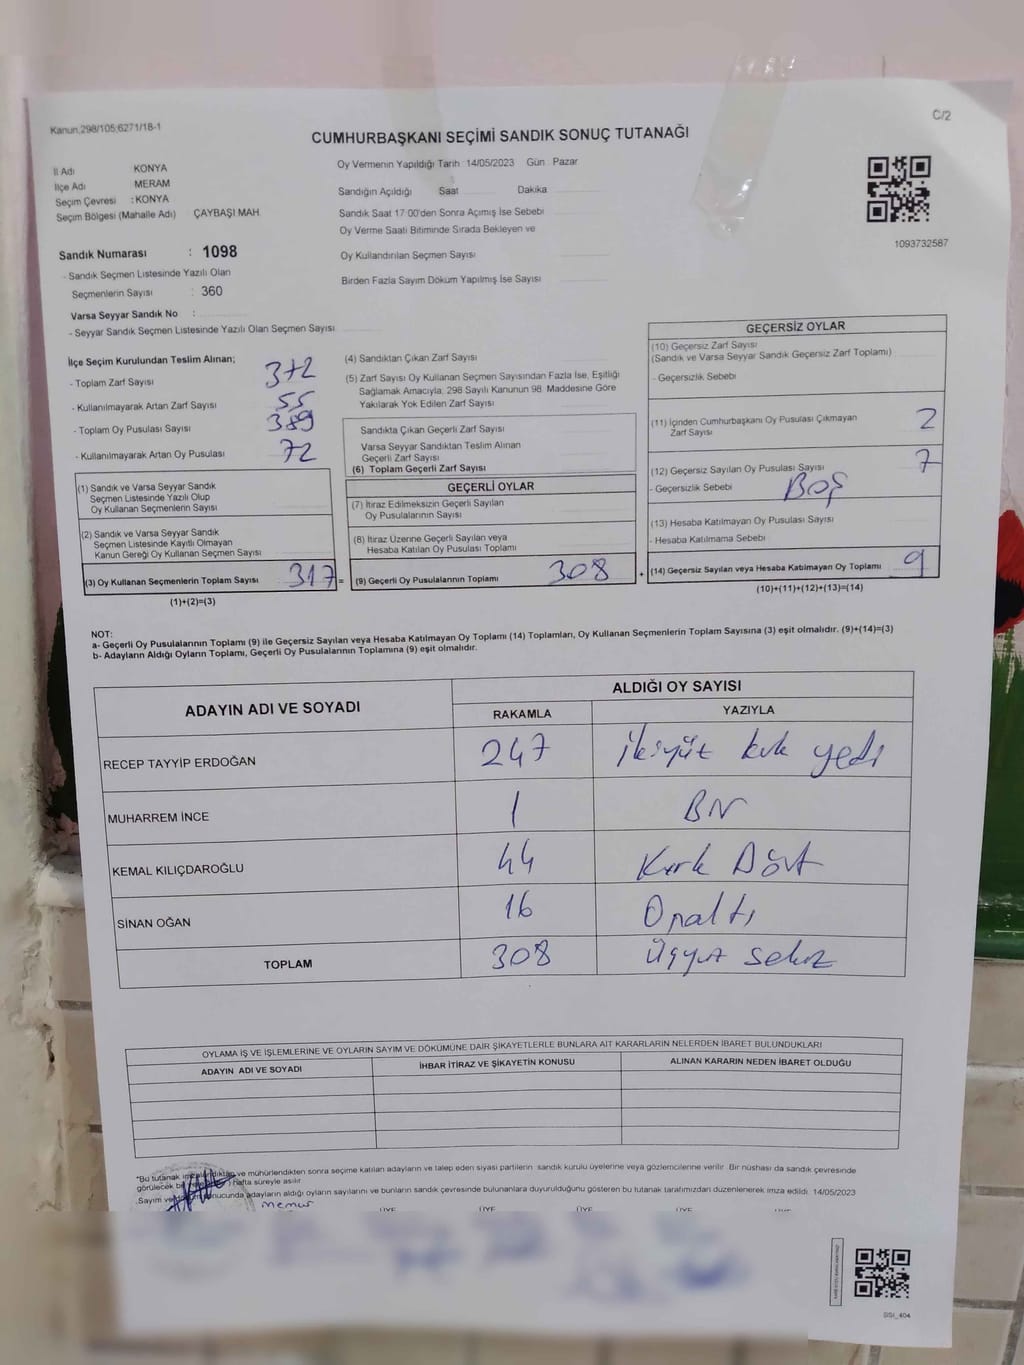 Kanun,298/105;6271/18-1
C/2
CUMHURBAŞKANI SEÇİMİ SANDIK SONUÇ TUTANAĞI
İl Adı KONYA
İlçe Adı MERAM
Seçim Çevresi : KONYA
Seçim Bölgesi (Mahalle Adı) ÇAYBAŞI MAH.
Sandık Numarası : 1098
- Sandık Seçmen Listesinde Yazılı Olan
Seçmenlerin Sayısı : 360
Varsa Seyyar Sandık No :
- Seyyar Sandık Seçmen Listesinde Yazılı Olan Seçmen Sayısı
Oy Vermenin Yapıldığı Tarih : 14/05/2023 Gün : Pazar
Sandığın Açıldığı Saat Dakika
Sandık Saat 17:00'den Sonra Açımış İse Sebebi
Oy Verme Saati Bitiminde Sırada Bekleyen ve
Oy Kullandırılan Seçmen Sayısı
Birden Fazla Sayım Döküm Yapılmış İse Sayısı
1093732587
İlçe Seçim Kurulundan Teslim Alınan;
- Toplam Zarf Sayısı 372
- Kullanılmayarak Artan Zarf Sayısı 55
- Toplam Oy Pusulası Sayısı 389
- Kullanılmayarak Artan Oy Pusulası 72
(1) Sandık ve Varsa Seyyar Sandık
Seçmen Listesinde Yazılı Olup
Oy Kullanan Seçmenlerin Sayısı
(2) Sandık ve Varsa Seyyar Sandık
Seçmen Listesinde Kayıtlı Olmayan
Kanun Gereği Oy Kullanan Seçmen Sayısı
(3) Oy Kullanan Seçmenlerin Toplam Sayısı 317 =
(1)+(2)=(3)
(4) Sandıktan Çıkan Zarf Sayısı
(5) Zarf Sayısı Oy Kullanan Seçmen Sayısından Fazla İse, Eşitliği
Sağlamak Amacıyla, 298 Sayılı Kanunun 98. Maddesine Göre
Yakılarak Yok Edilen Zarf Sayısı
Sandıkta Çıkan Geçerli Zarf Sayısı
Varsa Seyyar Sandıktan Teslim Alınan
Geçerli Zarf Sayısı
(6) Toplam Geçerli Zarf Sayısı
GEÇERLİ OYLAR
(7) İtiraz Edilmeksizin Geçerli Sayılan
Oy Pusulalarının Sayısı
(8) İtiraz Üzerine Geçerli Sayılan veya
Hesaba Katılan Oy Pusulası Toplamı
(9) Geçerli Oy Pusulalarının Toplamı 308 +
GEÇERSİZ OYLAR
(10) Geçersiz Zarf Sayısı
(Sandık ve Varsa Seyyar Sandık Geçersiz Zarf Toplamı)
- Geçersizlik Sebebi
(11) İçinden Cumhurbaşkanı Oy Pusulası Çıkmayan
Zarf Sayısı 2
(12) Geçersiz Sayılan Oy Pusulası Sayısı 7
- Geçersizlik Sebebi Boş
(13) Hesaba Katılmayan Oy Pusulası Sayısı
- Hesaba Katılmama Sebebi
(14) Geçersiz Sayılan veya Hesaba Katılmayan Oy Toplamı 9
(10)+(11)+(12)+(13)=(14)
NOT:
a- Geçerli Oy Pusulalarının Toplamı (9) ile Geçersiz Sayılan veya Hesaba Katılmayan Oy Toplamı (14) Toplamları, Oy Kullanan Seçmenlerin Toplam Sayısına (3) eşit olmalıdır. (9)+(14)=(3)
b- Adayların Aldığı Oyların Toplamı, Geçerli Oy Pusulalarının Toplamına (9) eşit olmalıdır.
ADAYIN ADI VE SOYADI
ALDIĞI OY SAYISI
RAKAMLA YAZIYLA
RECEP TAYYİP ERDOĞAN 247 ikiyüz kırk yedi
MUHARREM İNCE 1 Bir
KEMAL KILIÇDAROĞLU 44 Kırk Dört
SİNAN OĞAN 16 Onaltı
TOPLAM 308 Üçyüz sekiz
OYLAMA İŞ VE İŞLEMLERİNE VE OYLARIN SAYIM VE DÖKÜMÜNE DAİR ŞİKAYETLERLE BUNLARA AİT KARARLARIN NELERDEN İBARET BULUNDUKLARI
ADAYIN ADI VE SOYADI İHBAR İTİRAZ VE ŞİKAYETİN KONUSU ALINAN KARARIN NEDEN İBARET OLDUĞU
"Bu tutanak ve mühürlendikten sonra seçime katılan adayların ve talep eden siyasi partilerin sandık kurulu üyelerine veya gözlemcilerine verilir. Bir nüshası da sandık çevresinde
görülecek hafta süreyle asılır
Sayım adayların aldığı oyların sayılarını ve bunların sandık çevresinde bulunanlara duyurulduğunu gösteren bu tutanak tarafımızdan düzenlenerek imza edildi. 14/05/2023
memur
ÜYE ÜYE ÜYE ÜYE ÜYE
SSİ_404